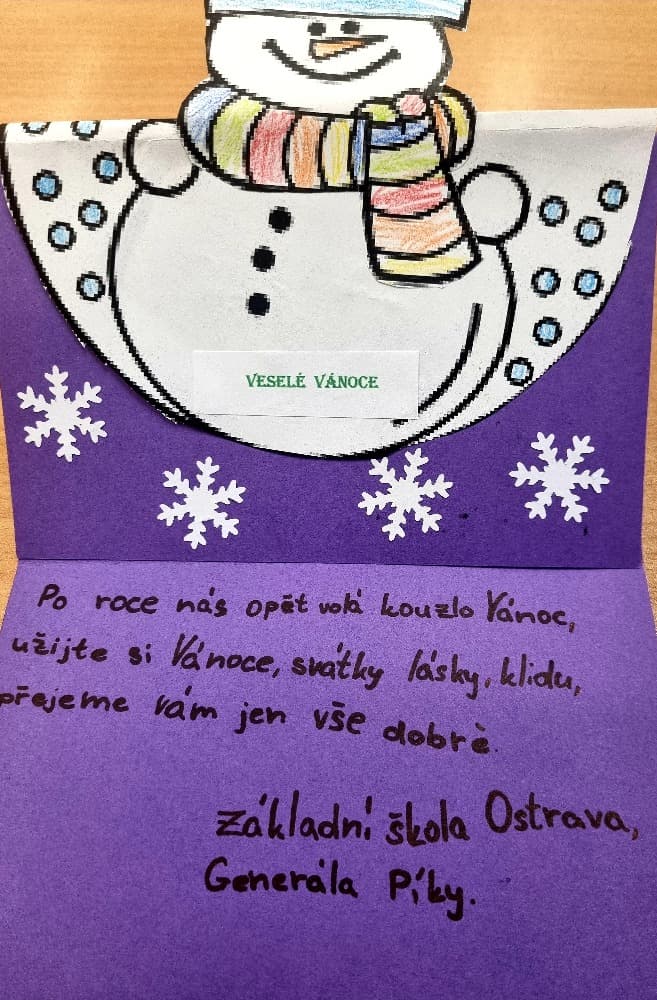 VESELÉ VÁNOCE
Po roce nás opět volá kouzlo Vánoc,
užijte si Vánoce, svátky lásky, klidu,
přejeme vám jen vše dobré.
Základní škola Ostrava,
Generála Píky.